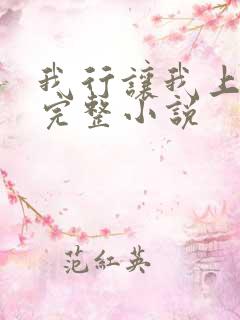 我行讓我上
完整小説
范紅英